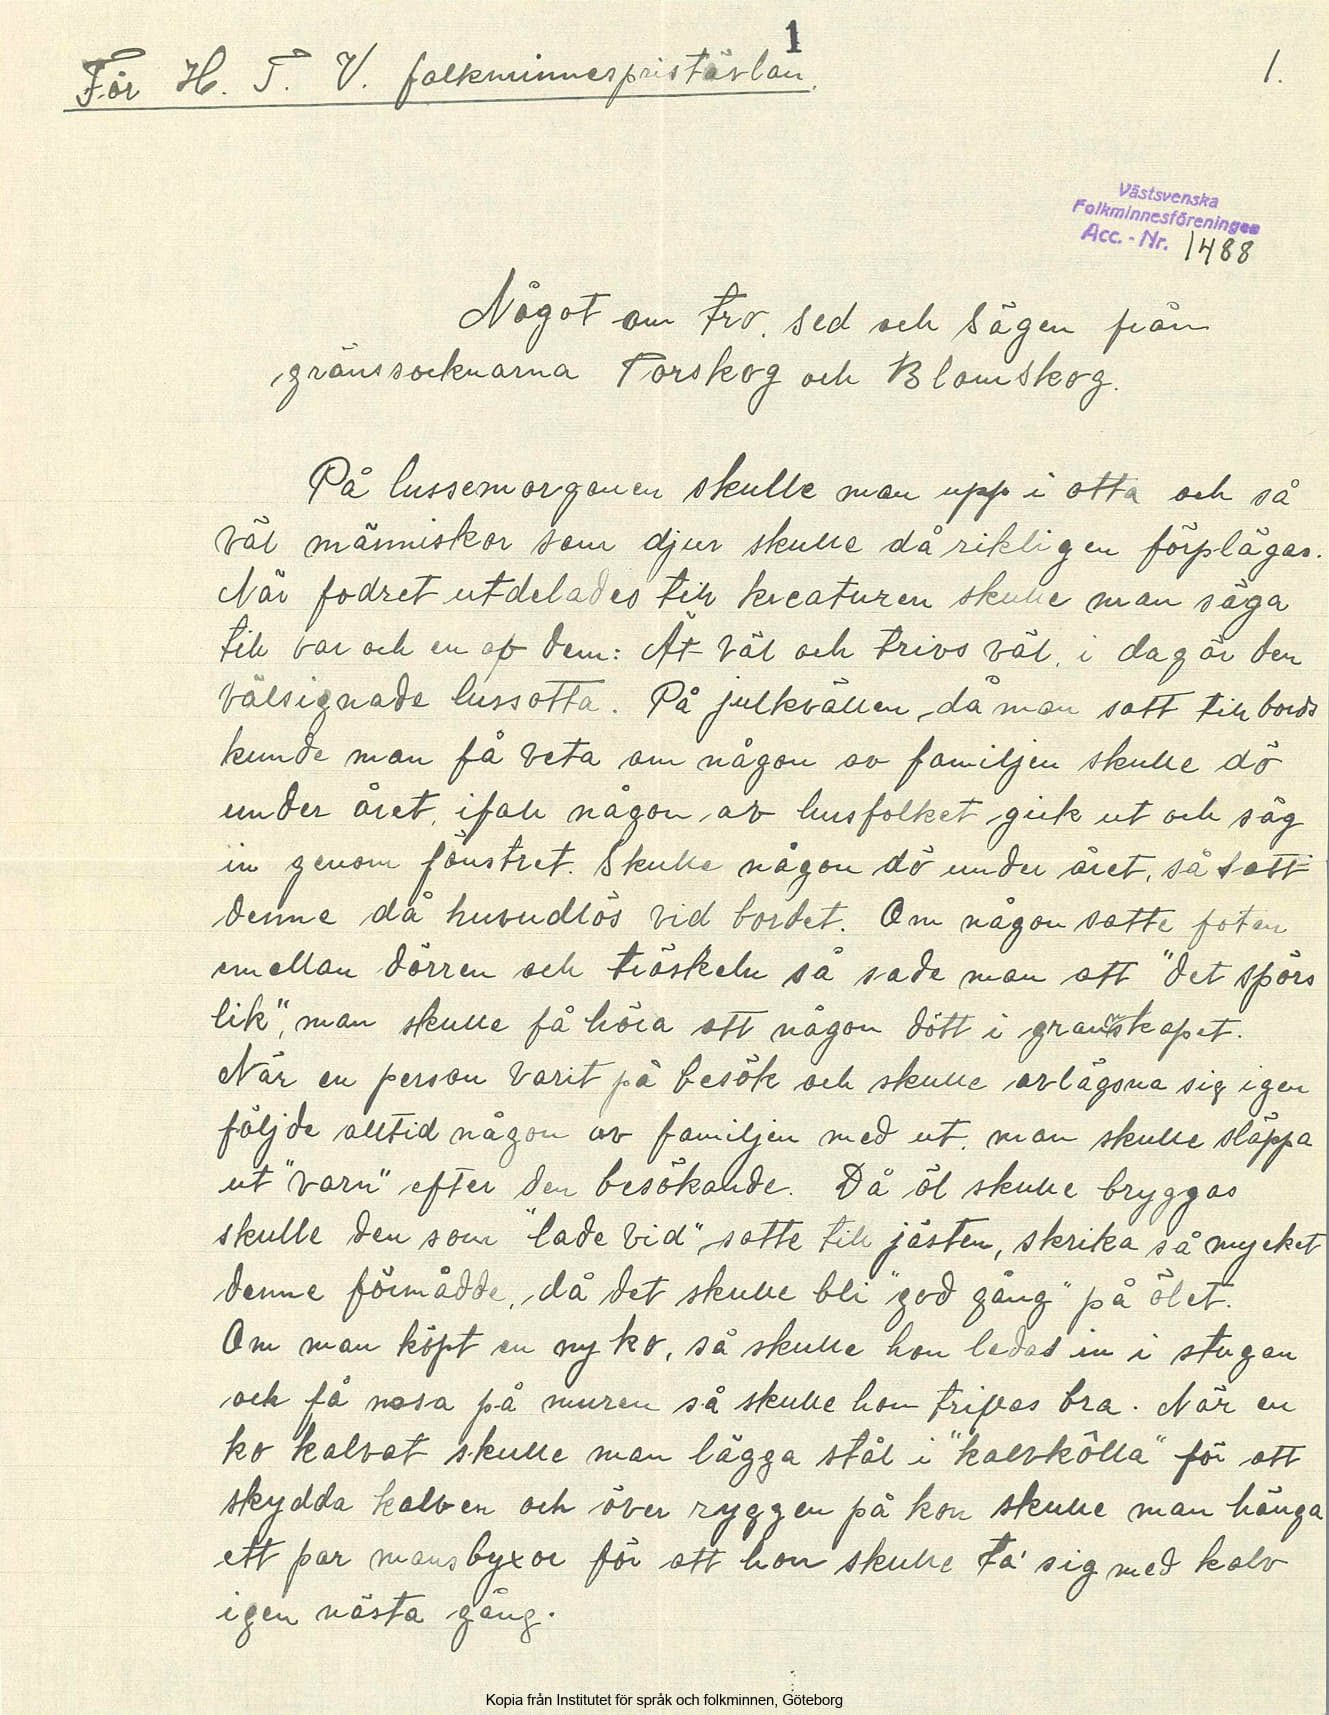 1
För H. T. V. folkminnespristävlan.
1.
Västsvenska
Folkminnesföreningen
Acc. - Nr. 1488
Något om tro, sed och sägen från
gränssocknarna Torskog och Blomskog.
På lussemorgonen skulle man upp i otta och så
väl människor som djur skulle då rikligen förplägas.
När fodret utdelades till kreaturen skulle man säga
till var och en af dem: Ät väl och trivs väl, i dag är den
välsignade lussotta. På julkvällen, då man satt till bords
kunde man få veta om någon av familjen skulle dö
under året, ifall någon av husfolket gick ut och såg
in genom fönstret. Skulle någon dö under året, så satt
denne då huvudlös vid bordet. Om någon satte foten
emellan dörren och tröskeln så sade man att "det spörs
lik", man skulle få höra att någon dött i granskapet.
När en person varit på besök och skulle avlägsna sig igen
följde alltid någon av familjen med ut, man skulle släppa
ut "varn" efter den besökande. Då öl skulle bryggas
skulle den som "lade vid" satte till jästen, skrika så mycket
denne förmådde, då det skulle bli "god gång" på ölet.
Om man köpt en ny ko, så skulle hon ledas in i stugan
och få nosa på muren så skulle hon trivas bra. När en
ko kalvat skulle man lägga stål i "kalvkölla" för att
skydda kalven och över ryggen på kon skulle man hänga
ett par mansbyxor för att hon skulle ta' sig med kalv
igen nästa gång.
Kopia från Institutet för språk och folkminnen, Göteborg